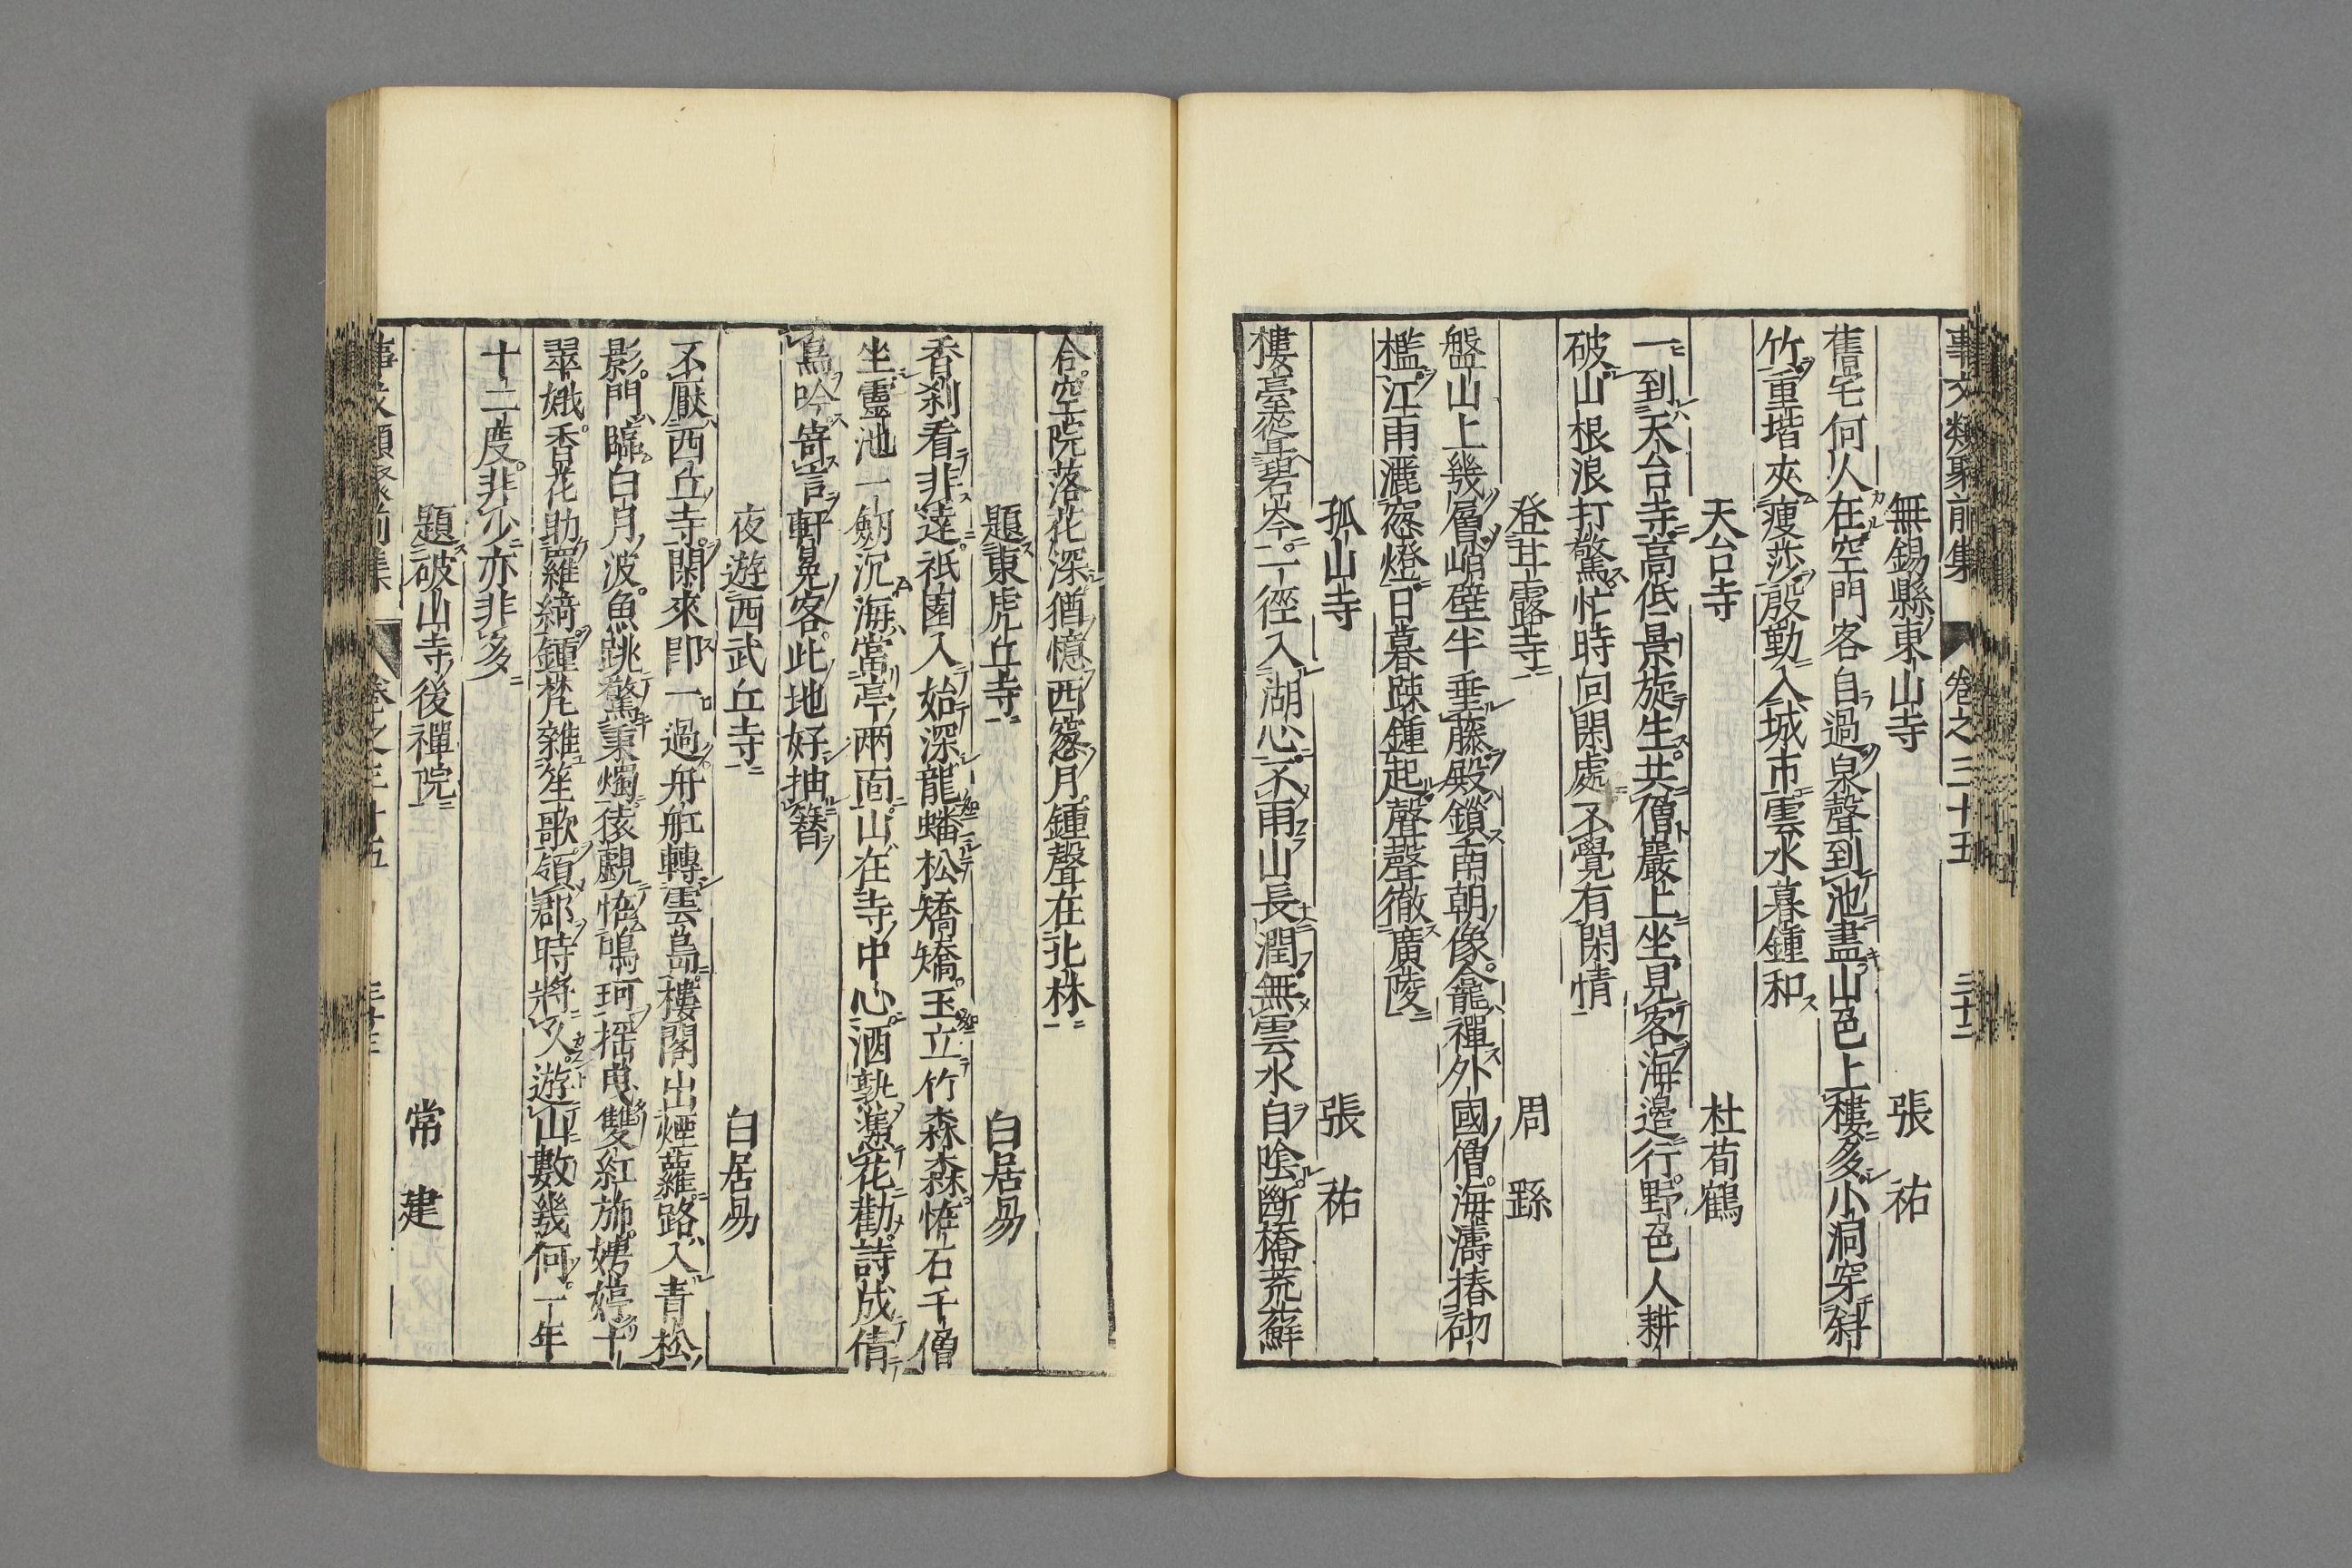 事文類聚前集 卷之三十五 三十二
無錫縣東山寺 張祐
舊宅何人在空門客自過泉聲到池盡山色上樓多小洞穿斜
竹重堦夾瘦莎殷勤入城市雲水暮鍾和
天台寺 杜荀鶴
一到天台寺高低景旋生共僧巖上坐見客海邉行野色人耕
破山根浪打驚忙時向閑處不覺有閑情
登甘露寺 周繇
盤山上幾層峭壁半垂藤殿鎻南朝像龕禪外國僧海濤摏砌
檻江雨灑窓燈日暮疎鍾起聲聲徹廣陵
孤山寺 張祐
樓臺聳碧岑一徑入湖心不雨山長潤無雲水自陰斷橋荒蘚
合空院落花深猶憶西窓月鍾聲在北林
題東虎丘寺 白居易
香刹看非逺祇園入始深龍蟠松矯矯玉立竹森森恠石千僧
坐靈池一劒沉海當亭兩面山在寺中心酒熟憑花勸詩成倩
鳥吟寄言軒冕客此地好抽簪
夜遊西武丘寺 白居易
不厭西丘寺閑來即一過舟舡轉雲島樓閣出煙蘿路入青松
影門臨白月波魚跳驚秉燭猿覷恠鳴珂揺曳雙紅旆娉婷十
翠娥香花助羅綺鍾梵雜笙歌領郡時將久遊山數幾何一年
十二度非少亦非多
題破山寺後禪院 常建
事文類聚前集 卷之三十五 三十三